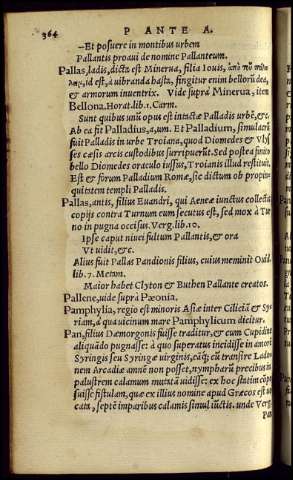 364 P ANTE A.
—Et posuere in montibus urbem
Pallantis proaui de nomine Pallanteum.
Pallas, ladis, dicta est Minerua, filia Iouis, ἀπὸ τοῦ
id est, à uibranda hasta, fingitur enim bellorũ dea,
& armorum inuentrix. Vide suprà Minerua, item
Bellona. Horat. lib. 1. Carm.
Sunt quibus unũ opus est intactæ Palladis urbẽ, &c.
Ab ea fit Palladius, a, um. Et Palladium, simulacrũ
fuit Palladis in urbe Troiana, quod Diomedes & Vlys
ses cæsis arcis custodibus surripuerũt. Sed postea finito
bello Diomedes oraculo iussus, Troianis illud restituit.
Est & forum Palladium Romæ, sic dictum ob propin-
qui tatem templi Palladis.
Pallas, antis, filius Euandri, qui Aeneæ iunctus collectis
copijs contra Turnum eum secutus est, sed mox à Tur
no in pugna occisus. Verg. lib. 10.
Ipse caput niuei fultum Pallantis, & ora
Vt uidit, &c.
Alius fuit Pallas Pandionis filius, cuius meminit Ouid.
lib. 7. Metam.
Maior habet Clyton & Buthen Pallante creatos.
Pallene, uide suprà Pæonia.
Pamphylia, regio est minoris Asiæ inter Ciliciã & Sy
riam, à qua uicinum mare Pamphylicum dicitur.
Pan, filius Dæmorgonis fuisse traditur, & cum Cupidine
aliquãdo pugnasse: à quo superatus incidisse in amorẽ
Syringis seu Syringæ uirginis, eãq; cũ transire Lado-
nem Arcadiæ amnẽ non posset, nympharũ precibus in
palustrem calamum mutatã uidisse: ex hoc statim
fuisse fistulam, quæ ex illius nomine apud Græcos est uo
cata, septẽ imparibus calamis simul iũctis. unde Verg.
Pan